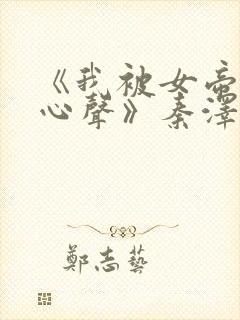 《我被女帝
心聲》秦澤
鄭志藝